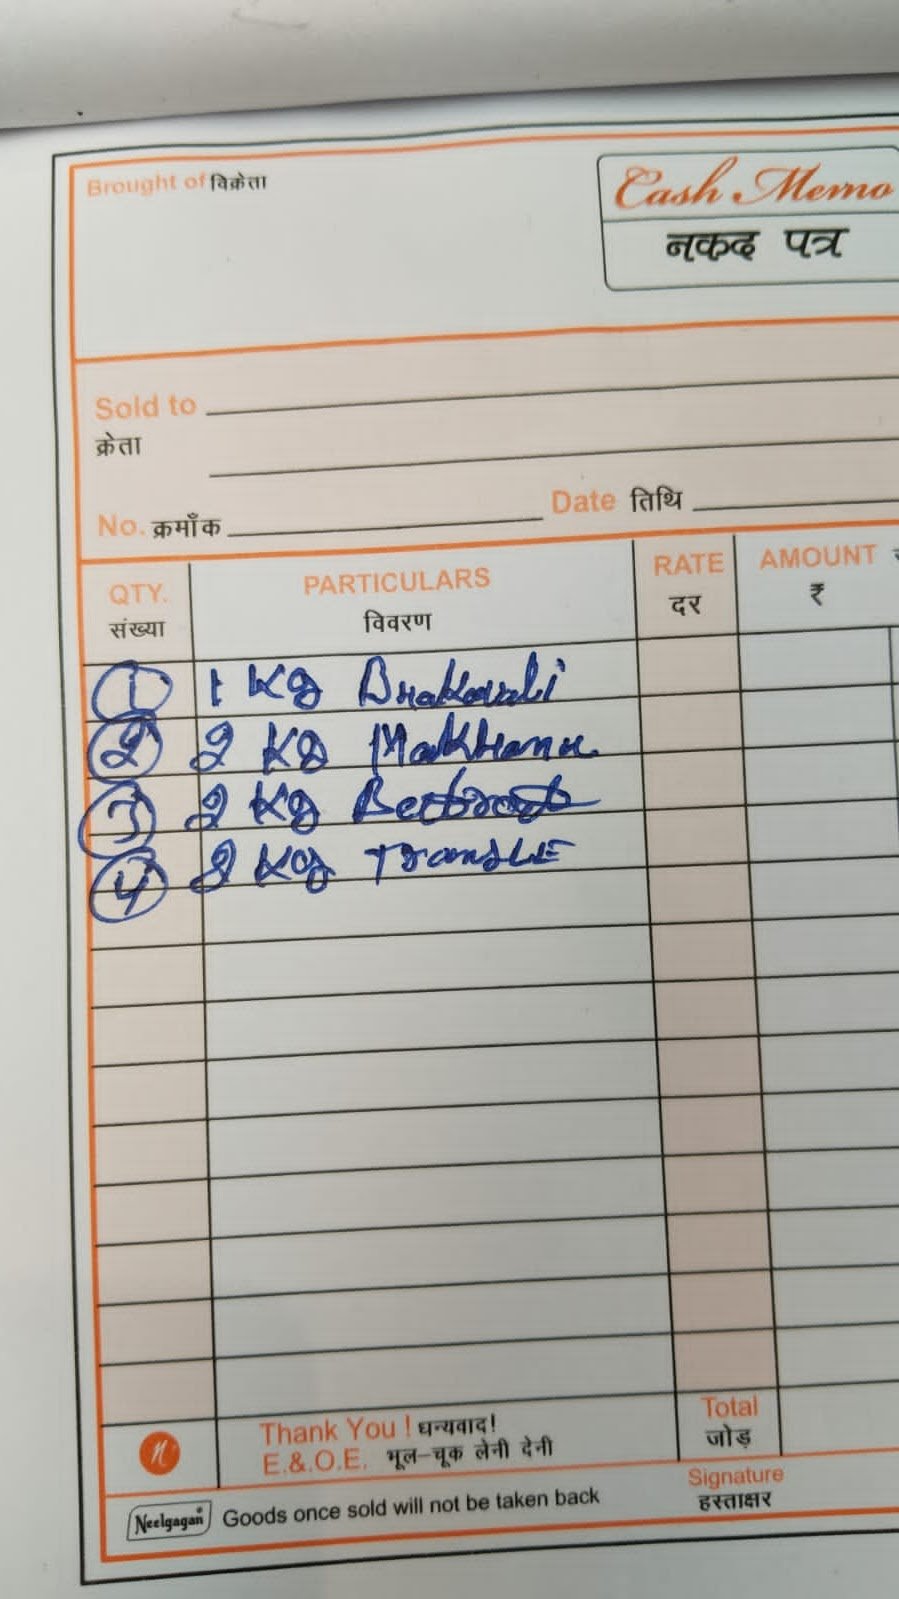 Brought of विक्रेता
Cash Memo
नकद पत्र
Sold to
क्रेता
No. क्रमाँक
Date तिथि
QTY. संख्या
PARTICULARS विवरण
RATE दर
AMOUNT ₹
1 1 KG Bhakarwadi
2 2 KG Makhana
3 2 KG
4 2 KG
Thank You ! धन्यवाद!
E.&.O.E. भूल-चूक लेनी देनी
Total जोड़
Signature
हस्ताक्षर
Neelgagan Goods once sold will not be taken back